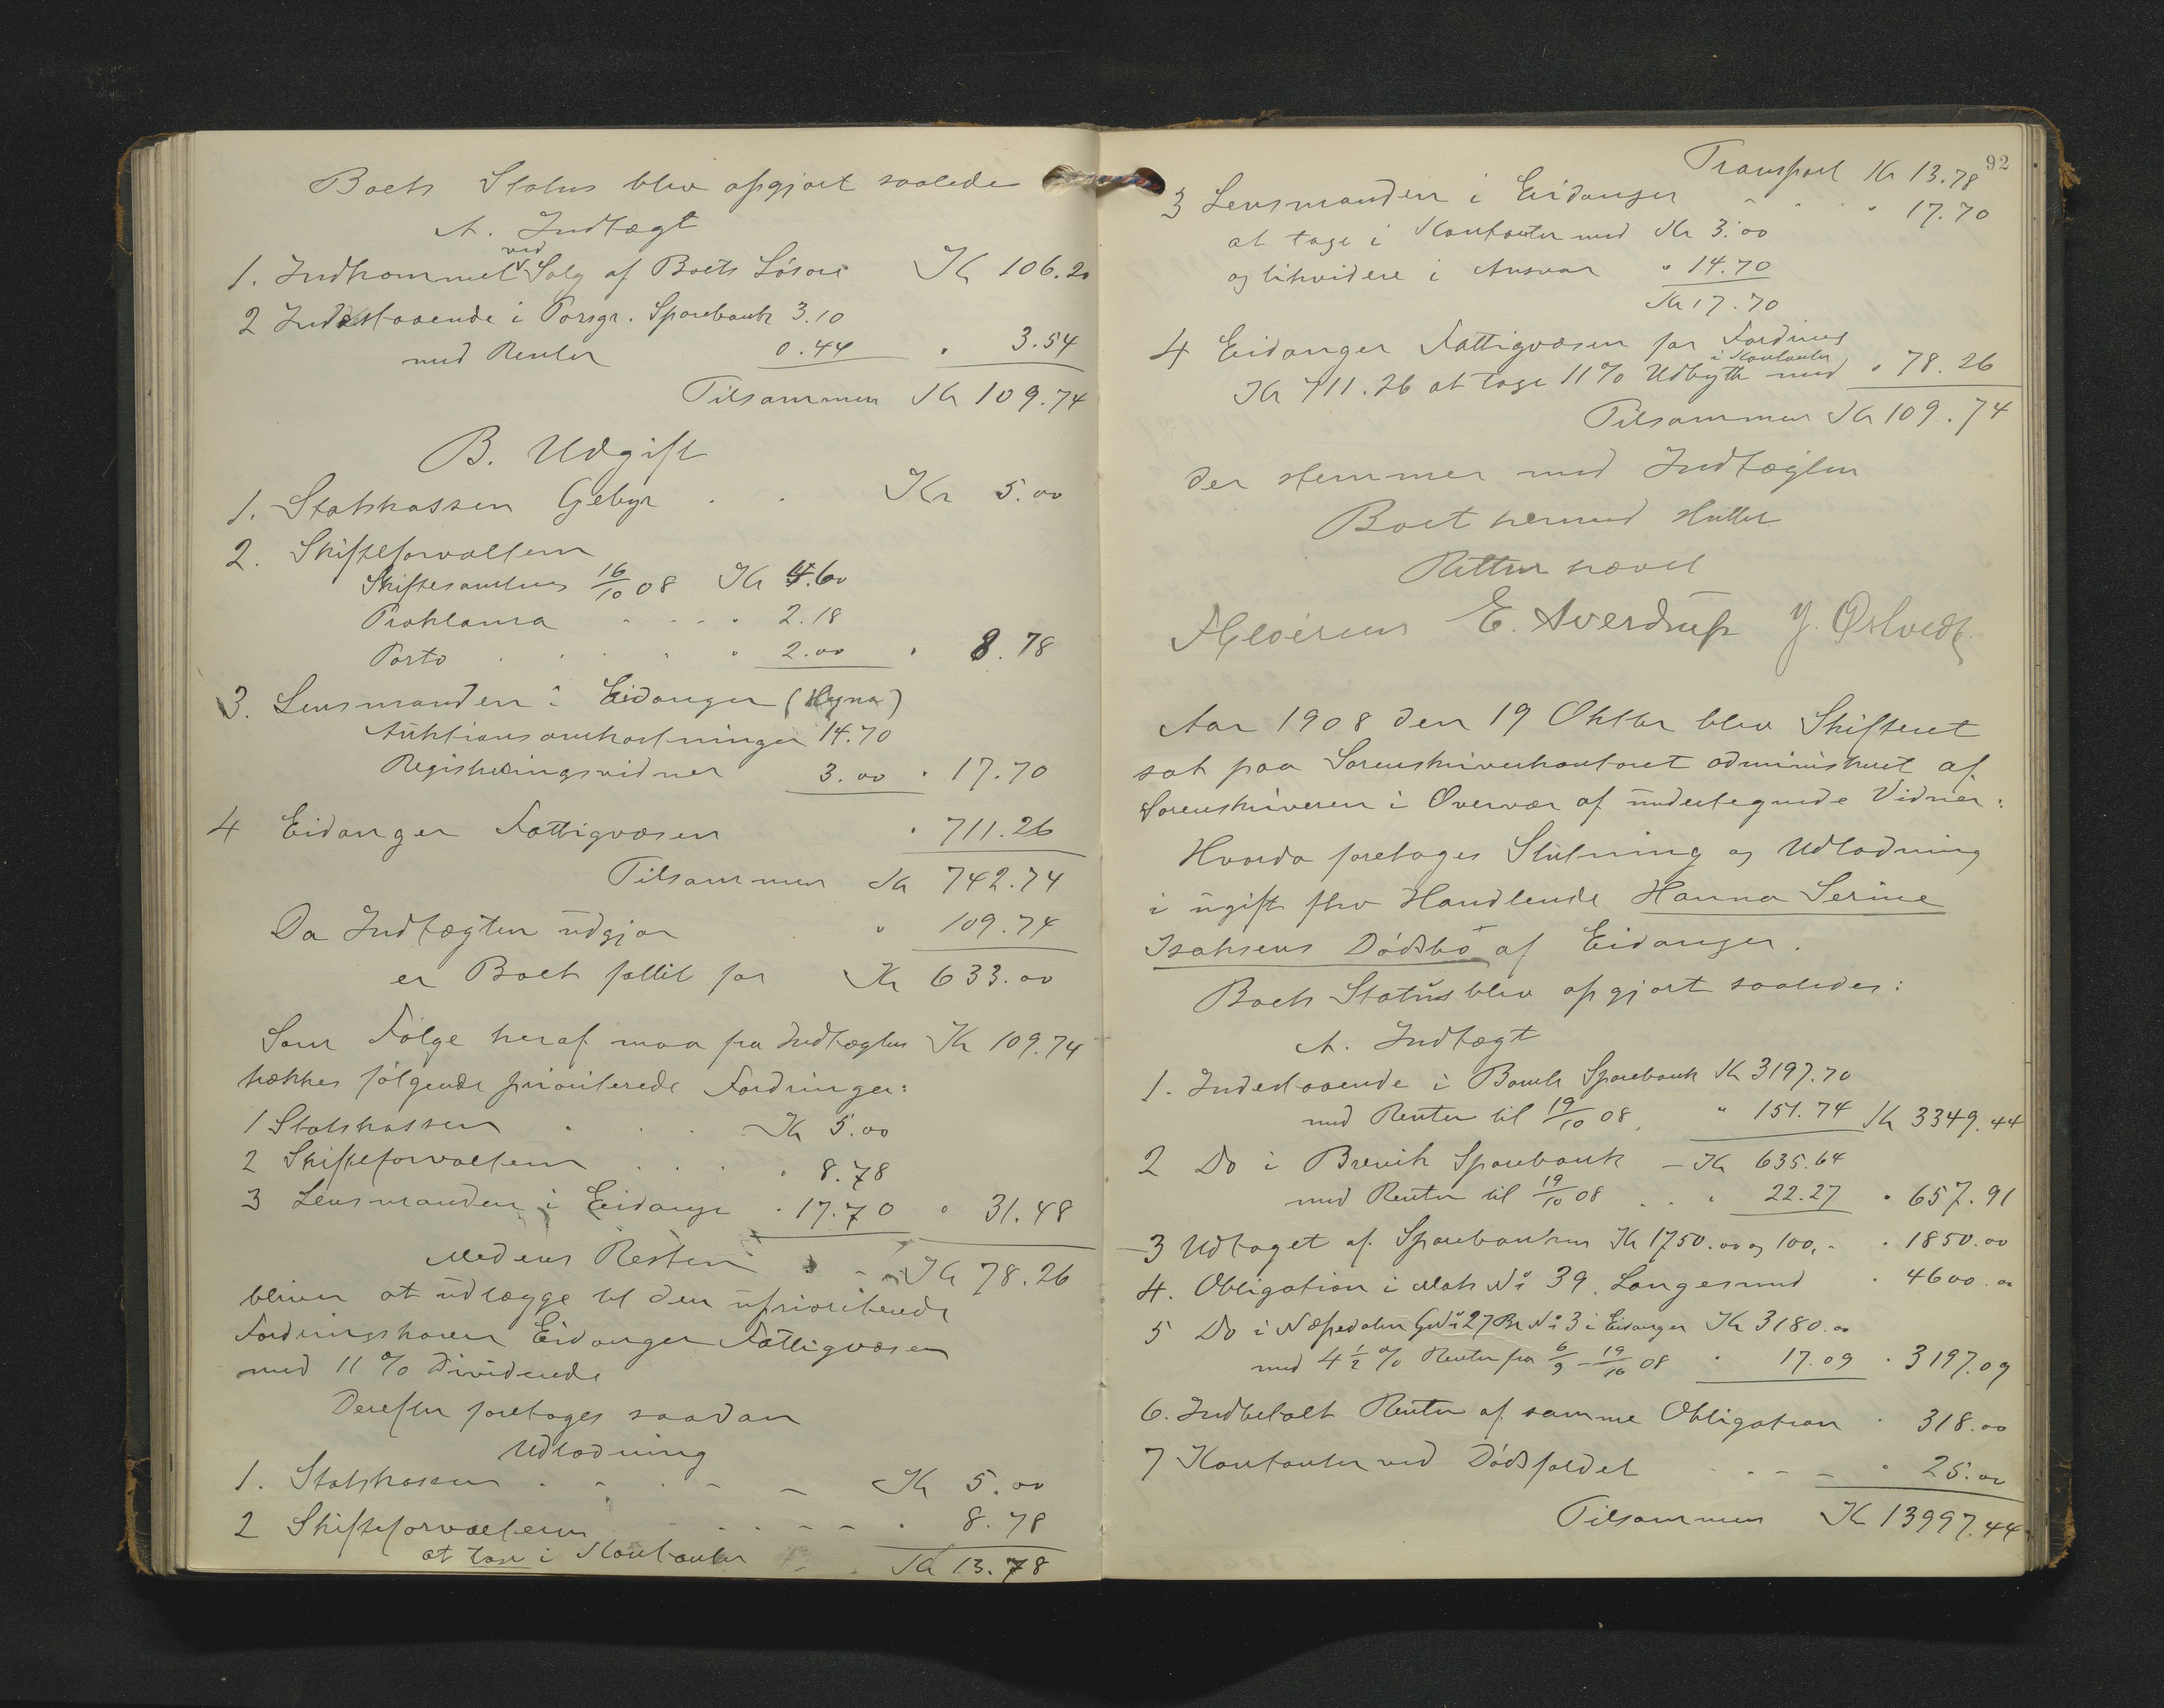 Boets Status blev opgjort saalede
A. Indtægt
1. Indkommet ved Salg af Boets Løsøre Kr 106.20
2 Indestaaende i Porsgr. Sparebank 3.10
med Renter 0.44 " 3.54
Tilsammen Kr 109.74
B. Udgift
1. Statskassen Gebyr . . Kr 5.00
2. Skifteforvalteren
Skiftesamling 16/10 08 Kr 4.60
Proklama . . . . " 2.18
Porto . . . . " 2.00 " 8.78
3. Lensmanden i Eidanger (Hegna)
Auktionsomkostninger 14.70
Registreringsvidner 3.00 " 17.70
4 Eidanger Fattigvæsen " 711.26
Tilsammen Kr 742.74
Da Indtægten udgjør " 109.74
er Boet fallit for Kr 633.00
Som Følge heraf maa fra Indtægten Kr 109.74
trækkes følgende prioriterede Fordringer:
1 Statskassen . . . Kr 5.00
2 Skifteforvalteren . . . . " 8.78
3 Lensmanden i Eidange " 17.70 " 31.48
Medens Resten " - - Kr 78.26
bliver at udlægge til den uprioriterede
Fordringshaver Eidanger Fattigvæsen
med 11 % Dividende
Derefter foretoges saadan
Udlodning
1. Statskassen . - . - - Kr 5.00
2 Skifteforvalteren . - . . - - - . 8.78
at tage i Kontanter . Kr 13.78
92
Transport Kr 13.78
3 Lensmanden i Eidanger - . . " 17.70
at tage i Kontanter med Kr 3.00
og likvidere i Ansvar " 14.70
Kr 17.70
4 Eidanger Fattigvæsen for Fordring
Kr 711.26 at tage 11 % Udbytte i Kontanter med " 78.26
Tilsammen Kr 109.74
der stemmer med Indtægten
Boet hermed sluttet
Retten hævet
E. Sverdrup J. Ørstvedt.
Aar 1908 den 19 Oktbr blev Skifteret
sat paa Sorenskriverkontoret administreret af
Sorenskriveren i Overvær af undertegnede Vidner:
Hvorda foretoges Slutning og Udlodning
i ugift fhv Handlende Hanna Serine
Isaksens Dødsbo af Eidanger.
Boets Status blev opgjort saaledes:
A. Indtægt
1. Indestaaende i Bamble Sparebank Kr 3197.70
med Renter til 19/10 08. " 151.74 Kr 3349.44
2 Do i Brevik Sparebank - Kr 635.64
med Renter til 19/10 08 . . " 22.27 " 657.91
3 Udtaget af Sparebanken Kr 1750.00 og 100,- " 1850.00
4. Obligation i Matr No 39. Langesund " 4600.00
5 Do i Nøpedalen G No 27 Br No 3 i Eidanger Kr 3180.00
med 4 1/2 % Renter fra 6/9 - 19/10 08 " 17.09 " 3197.09
6. Indbetalt Renter af samme Obligation " 318.00
7 Kontanter ved Dødsfaldet . . - - - " 25.00
Tilsammen Kr 13997.44